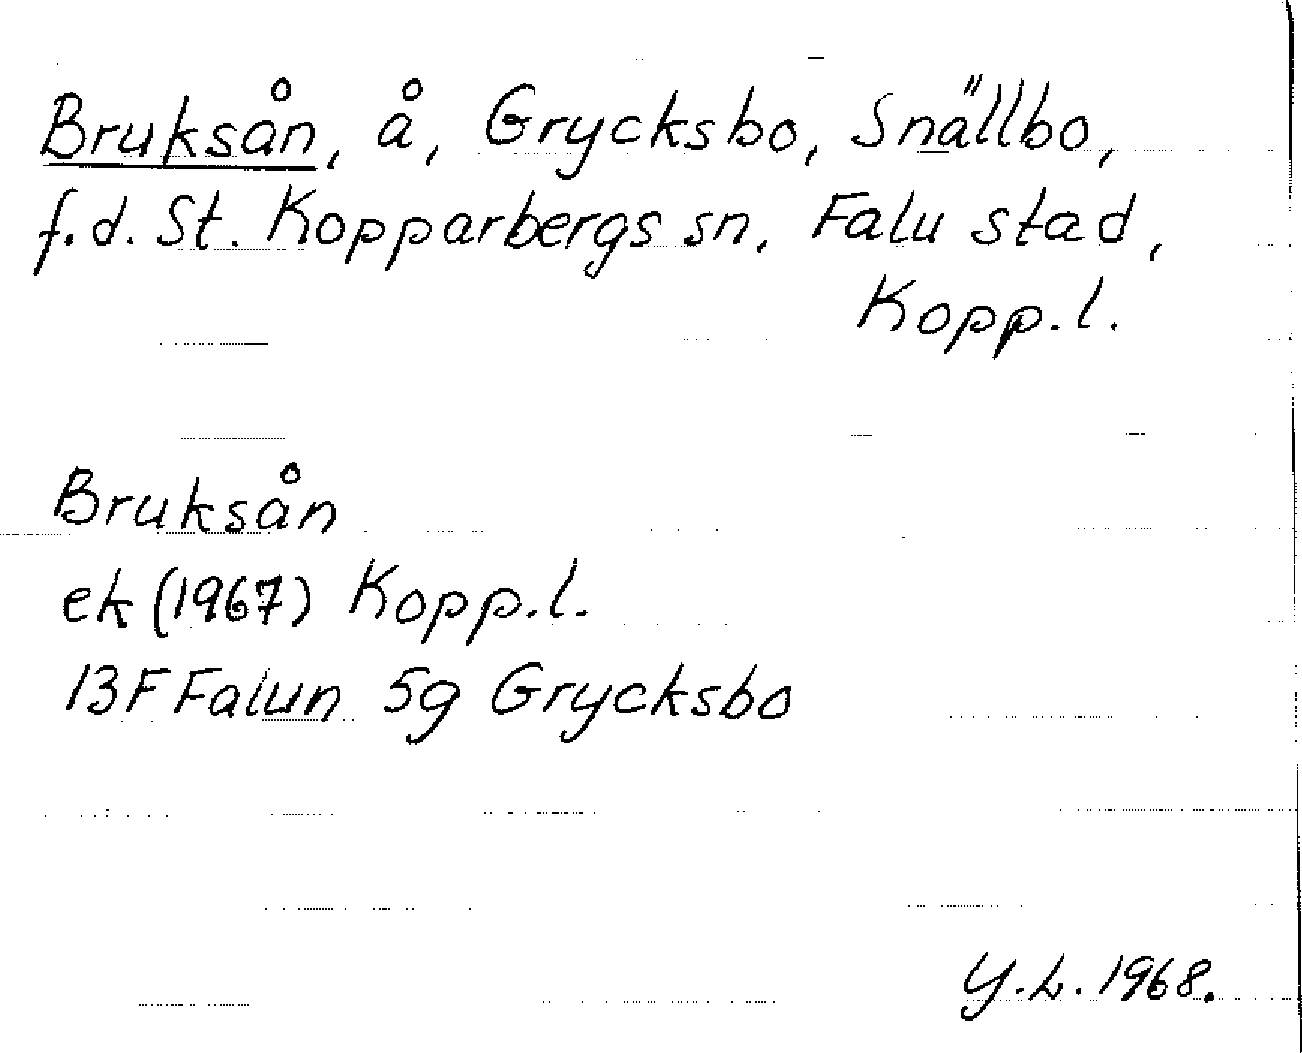 Bruksån, å, Grycksbo, Snällbo,
f.d. St. Kopparbergs sn, Falu stad,
Kopp.l.
Bruksån
ek (1967) Kopp.l.
13F Falun 5g Grycksbo
Y.L. 1968.